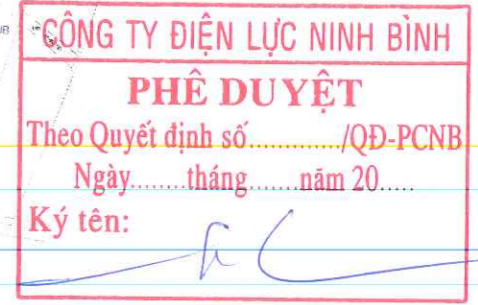 CÔNG TY ĐIỆN LỰC NINH BÌNH
PHÊ DUYỆT
Theo Quyết định số............./QĐ-PCNB
Ngày........tháng.......năm 20.....
Ký tên: